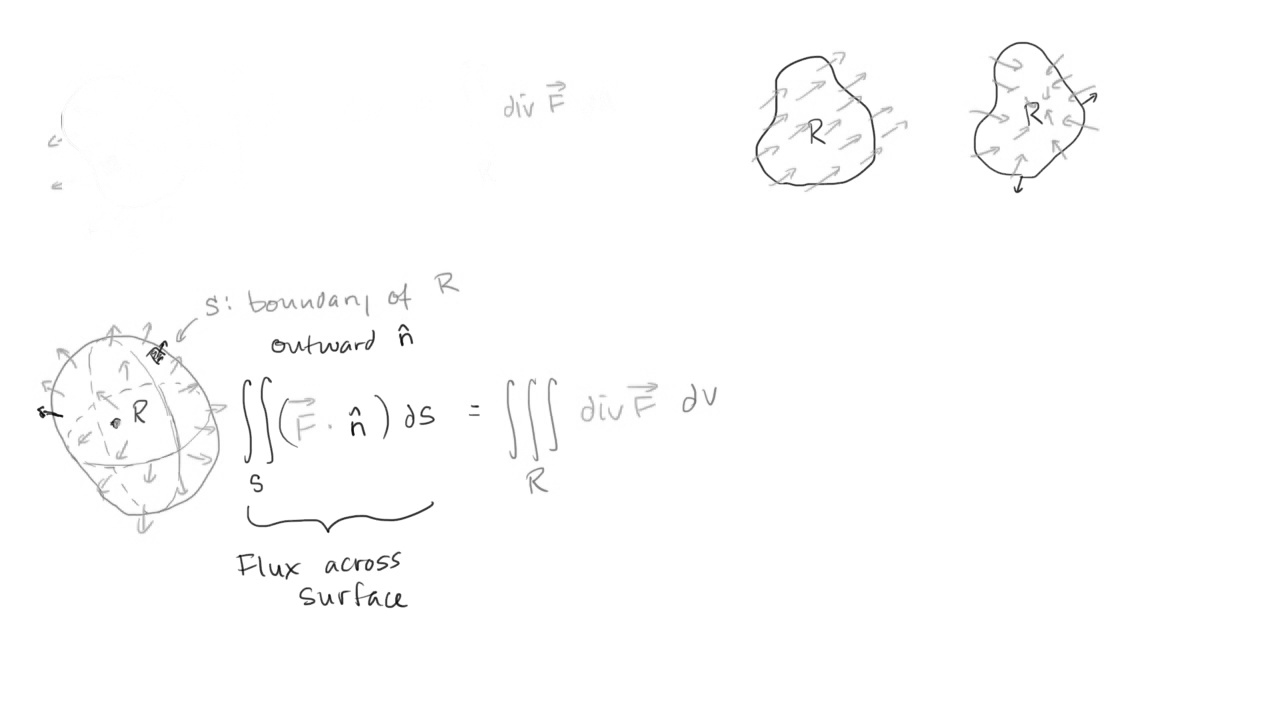 div F⃗
R
R
S: boundary of R
outward n̂
R
∬_S (F⃗ · n̂) ds = ∭_R div F⃗ dv
Flux across
surface